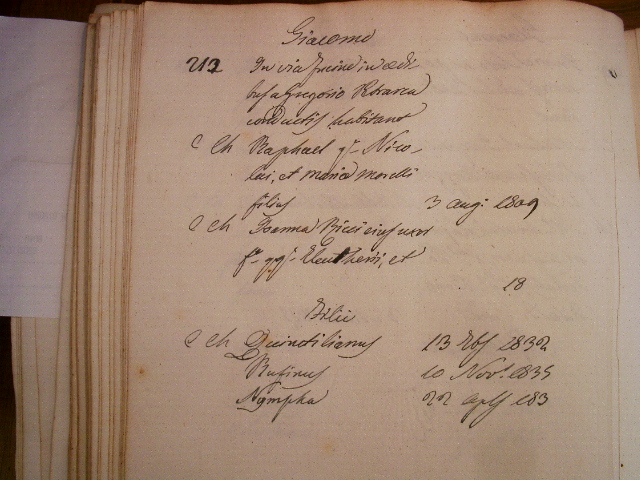 Giacomo
212 In via Freine in ædi-
bus a Gregorio Petrarca
conductis habitant
C Ch Raphael q.m Nico-
lai, et Maria Morelli
filius 3 aug. 1809
C Ch Joanna Ricci eius uxor
f.a qq.m Eleutherii, et
18
Filii
C Ch Quinctilianus 13 Xbs 1832
Rufinus 10 Nov.s 1835
Nympha 22 apls 183